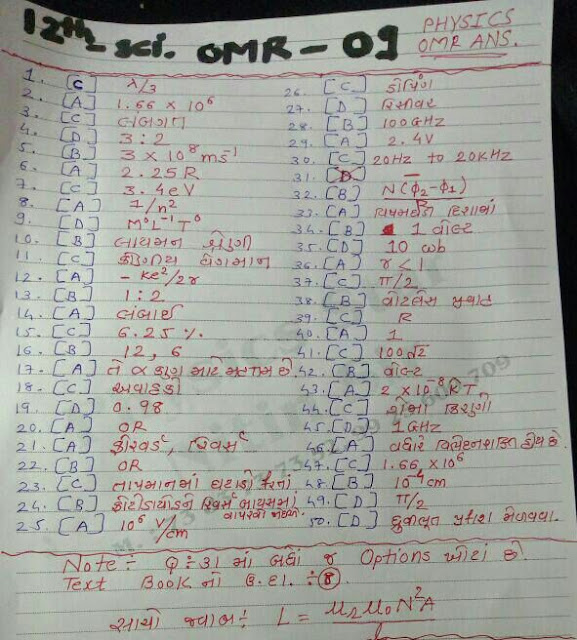 12th sci. OMR - 09
PHYSICS
OMR ANS.
1. [C] λ/3
2. [A] 1.66 × 10⁶
3. [C]
4. [D] 3 : 2
5. [B] 3 × 10⁸ ms⁻¹
6. [A] 2.25 R
7. [C] 3.4 eV
8. [A] 1/n²
9. [D] M⁰L⁻¹T⁰
10. [B] લાયમન શ્રેણી
11. [C] કોણીય વેગમાન
12. [A] - Ke²/2r
13. [B] 1 : 2
14. [A] લંબાઈ
15. [C] 6.25 %
16. [B] 12, 6
17. [A] તે α કણ માટે મહત્તમ છે.
18. [C] અચાકડી
19. [D] 0.98
20. [A] OR
21. [A] ફોરવર્ડ, રિવર્સ
22. [B] OR
23. [C] તાપમાનમાં ઘટાડો કરતાં
24. [B] ફોટોડાયોડને રિવર્સ બાયસમાં
25. [A] 10⁶ V/cm
26. [C] ડોપિંગ
27. [D] રિસીવર
28. [B] 100 GHz
29. [A] 2.4V
30. [C] 20Hz to 20KHz
31. [D] —
32. [B] N(ϕ₂-ϕ₁)
33. [A] દિશામાં
34. [B] 1 વોલ્ટ
35. [D] 10 wb
36. [A] r < 1
37. [C] π/2
38. [B] વોટલેસ પ્રવાહ
39. [C] R
40. [A] 1
41. [C] 100√2
42. [B] વોલ્ટ
43. [A] 2 × 10⁻⁸ KT
44. [C] ગેમા કિરણો
45. [D] 1 GHz
46. [A] વધારે વિભેદનશક્તિ હોય છે.
47. [C] 1.66 × 10⁶
48. [B] 10⁻⁴ cm
49. [D] π/2
50. [D] ધ્રુવીભૂત પ્રકાશ મેળવવા.
Note :- Q ÷ 31 માં બધાં જ Options ખોટાં છે.
Text Book નો ઉ.દા. ÷ 8
સાચો જવાબ ÷ L = μᵣμ₀N²A